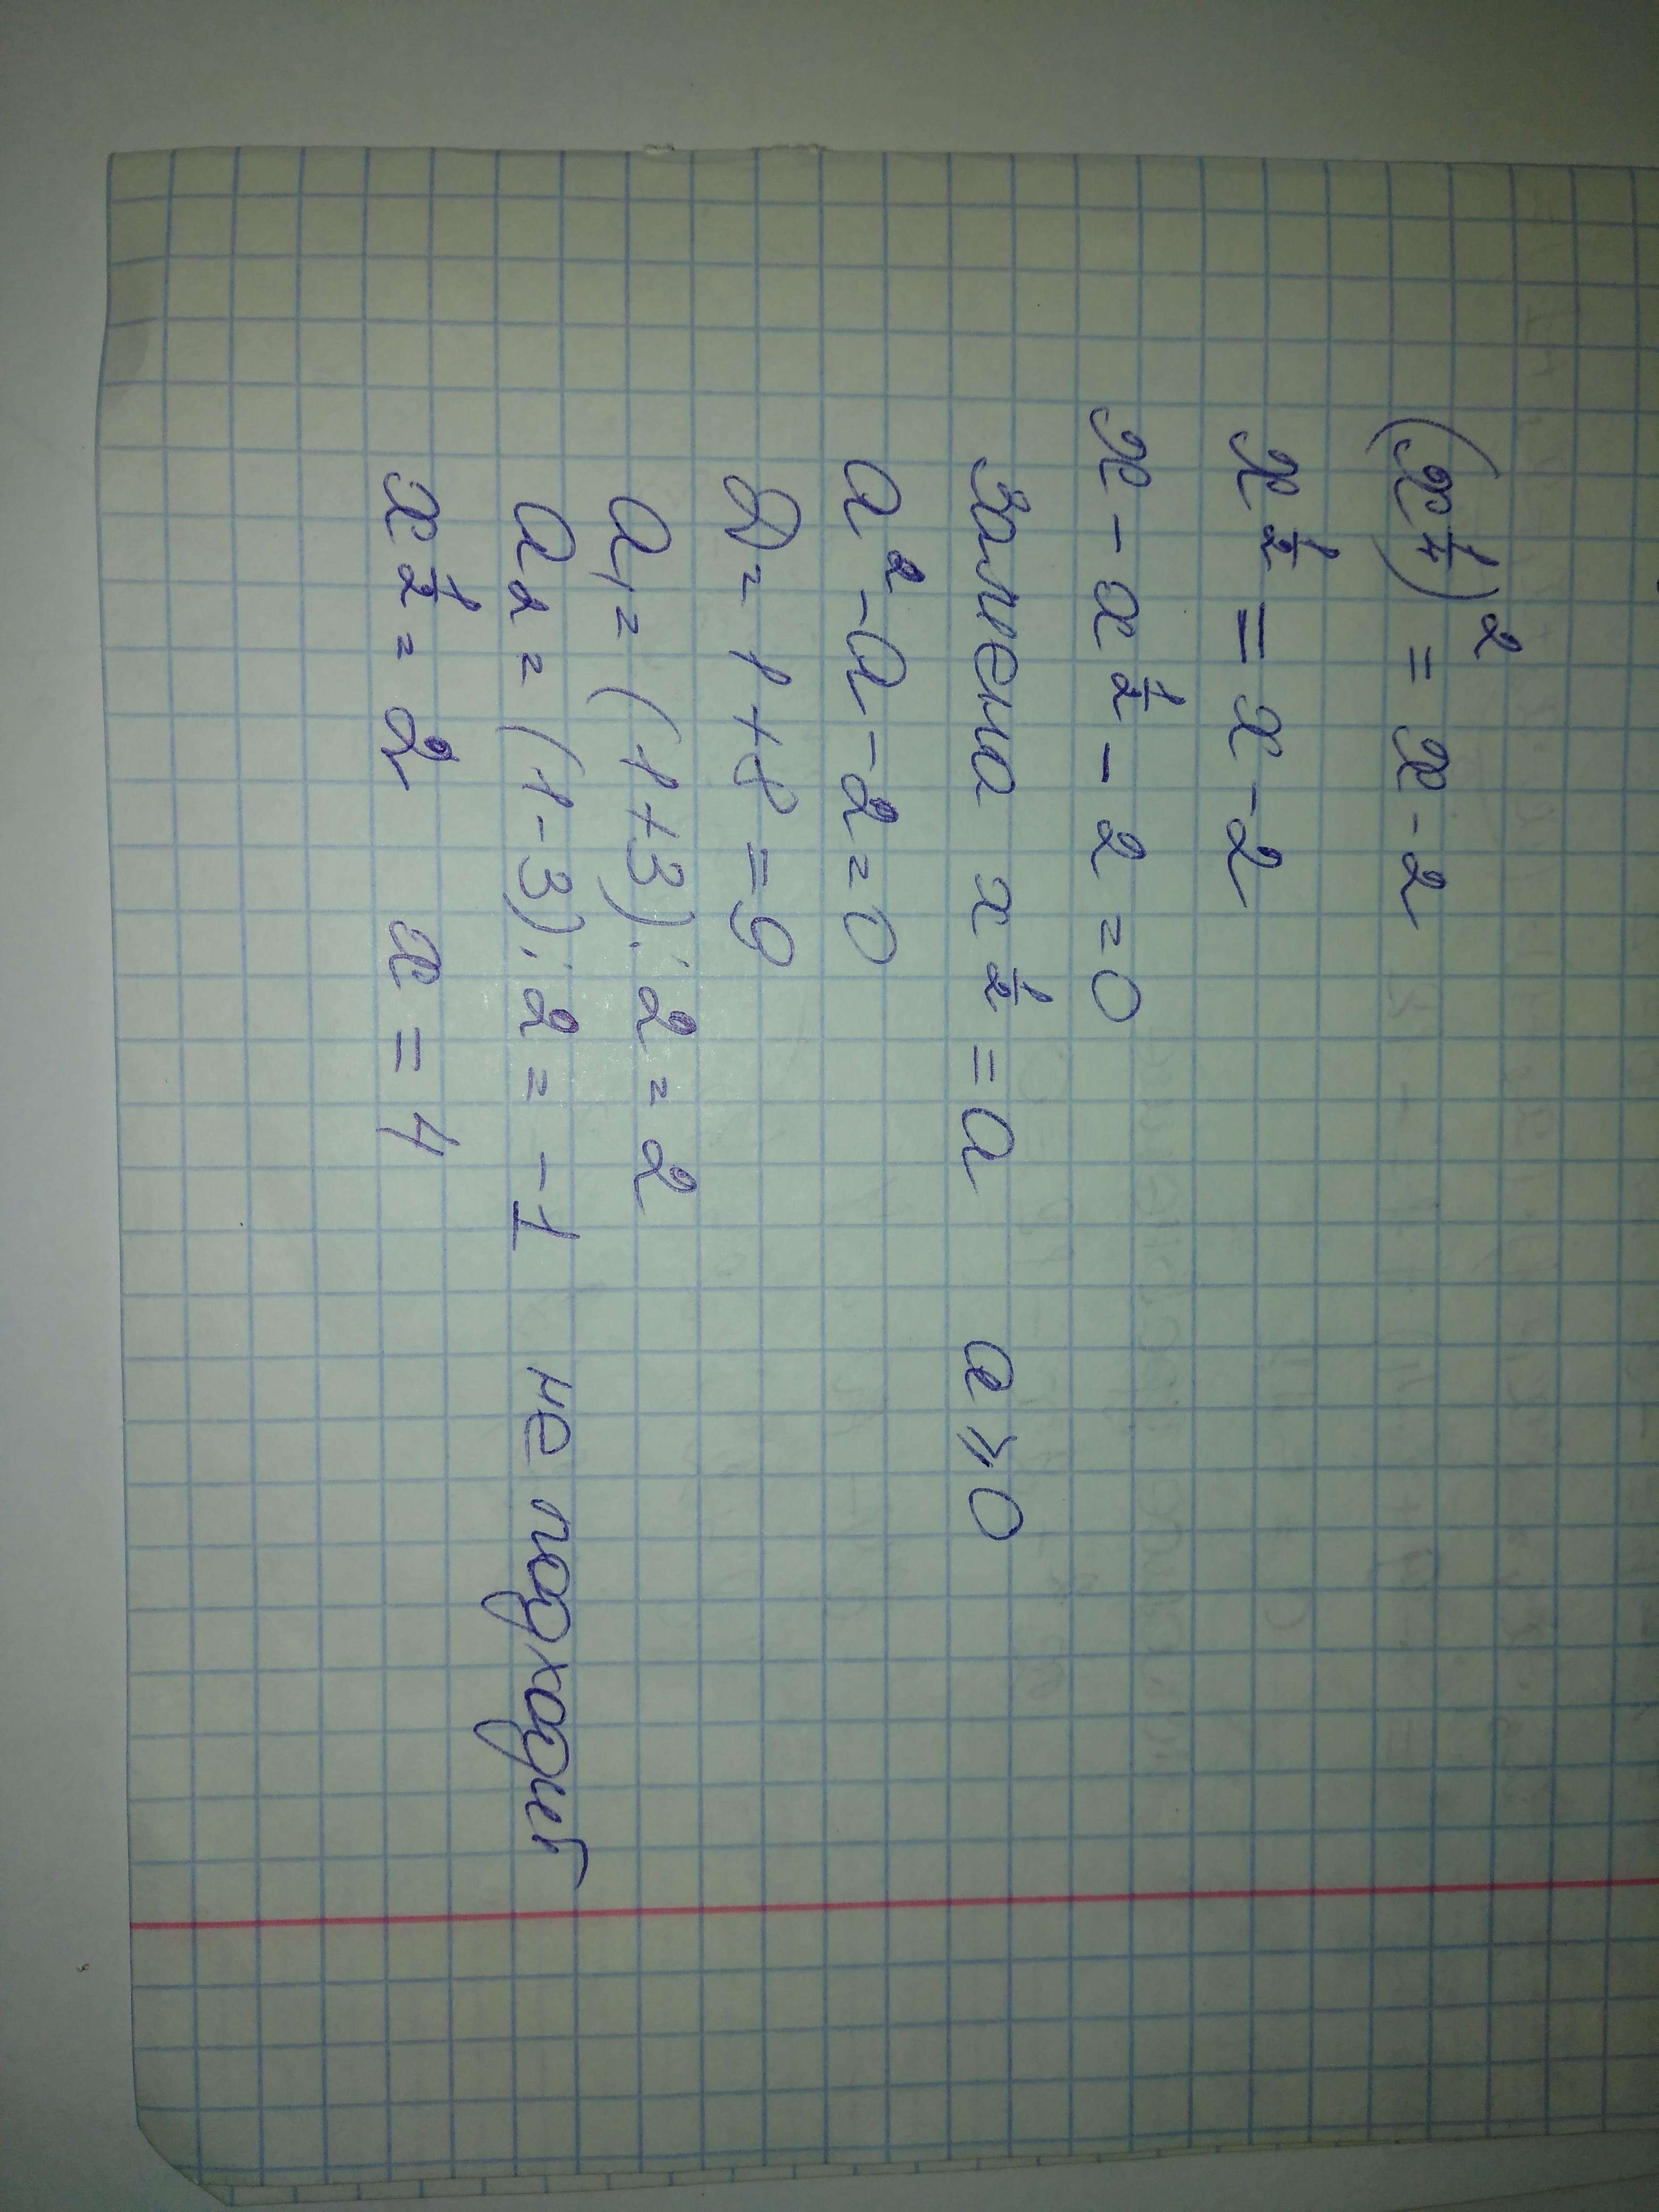 (x^{1/4})^2 = x - 2
x^{1/2} = x - 2
x - x^{1/2} - 2 = 0
Замена x^{1/2} = a    a ⩾ 0
a^2 - a - 2 = 0
D = 1 + 8 = 9
a_1 = (1+3):2 = 2
a_2 = (1-3):2 = -1 не подходит
x^{1/2} = 2    x = 4